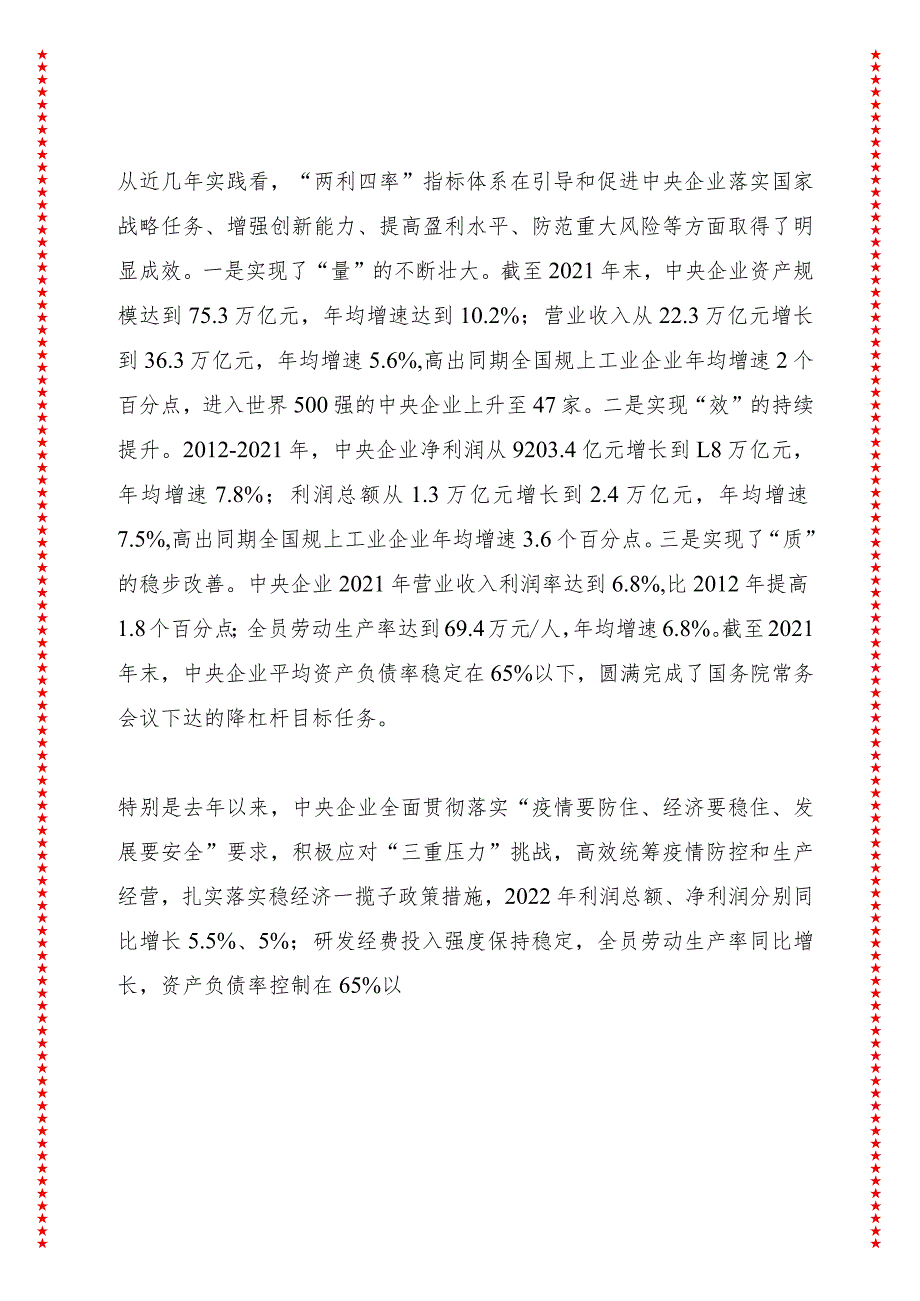 从近几年实践看，“两利四率”指标体系在引导和促进中央企业落实国家
战略任务、增强创新能力、提高盈利水平、防范重大风险等方面取得了明
显成效。一是实现了“量”的不断壮大。截至 2021 年末，中央企业资产规
模达到 75.3 万亿元，年均增速达到 10.2%；营业收入从 22.3 万亿元增长
到 36.3 万亿元，年均增速 5.6%,高出同期全国规上工业企业年均增速 2 个
百分点，进入世界 500 强的中央企业上升至 47 家。二是实现“效”的持续
提升。2012-2021 年，中央企业净利润从 9203.4 亿元增长到 L8 万亿元，
年均增速 7.8%；利润总额从 1.3 万亿元增长到 2.4 万亿元，年均增速
7.5%,高出同期全国规上工业企业年均增速 3.6 个百分点。三是实现了“质”
的稳步改善。中央企业 2021 年营业收入利润率达到 6.8%,比 2012 年提高
1.8 个百分点；全员劳动生产率达到 69.4 万元/人，年均增速 6.8%。截至 2021
年末，中央企业平均资产负债率稳定在 65%以下，圆满完成了国务院常务
会议下达的降杠杆目标任务。
特别是去年以来，中央企业全面贯彻落实“疫情要防住、经济要稳住、发
展要安全”要求，积极应对“三重压力”挑战，高效统筹疫情防控和生产
经营，扎实落实稳经济一揽子政策措施，2022 年利润总额、净利润分别同
比增长 5.5%、5%；研发经费投入强度保持稳定，全员劳动生产率同比增
长，资产负债率控制在 65%以